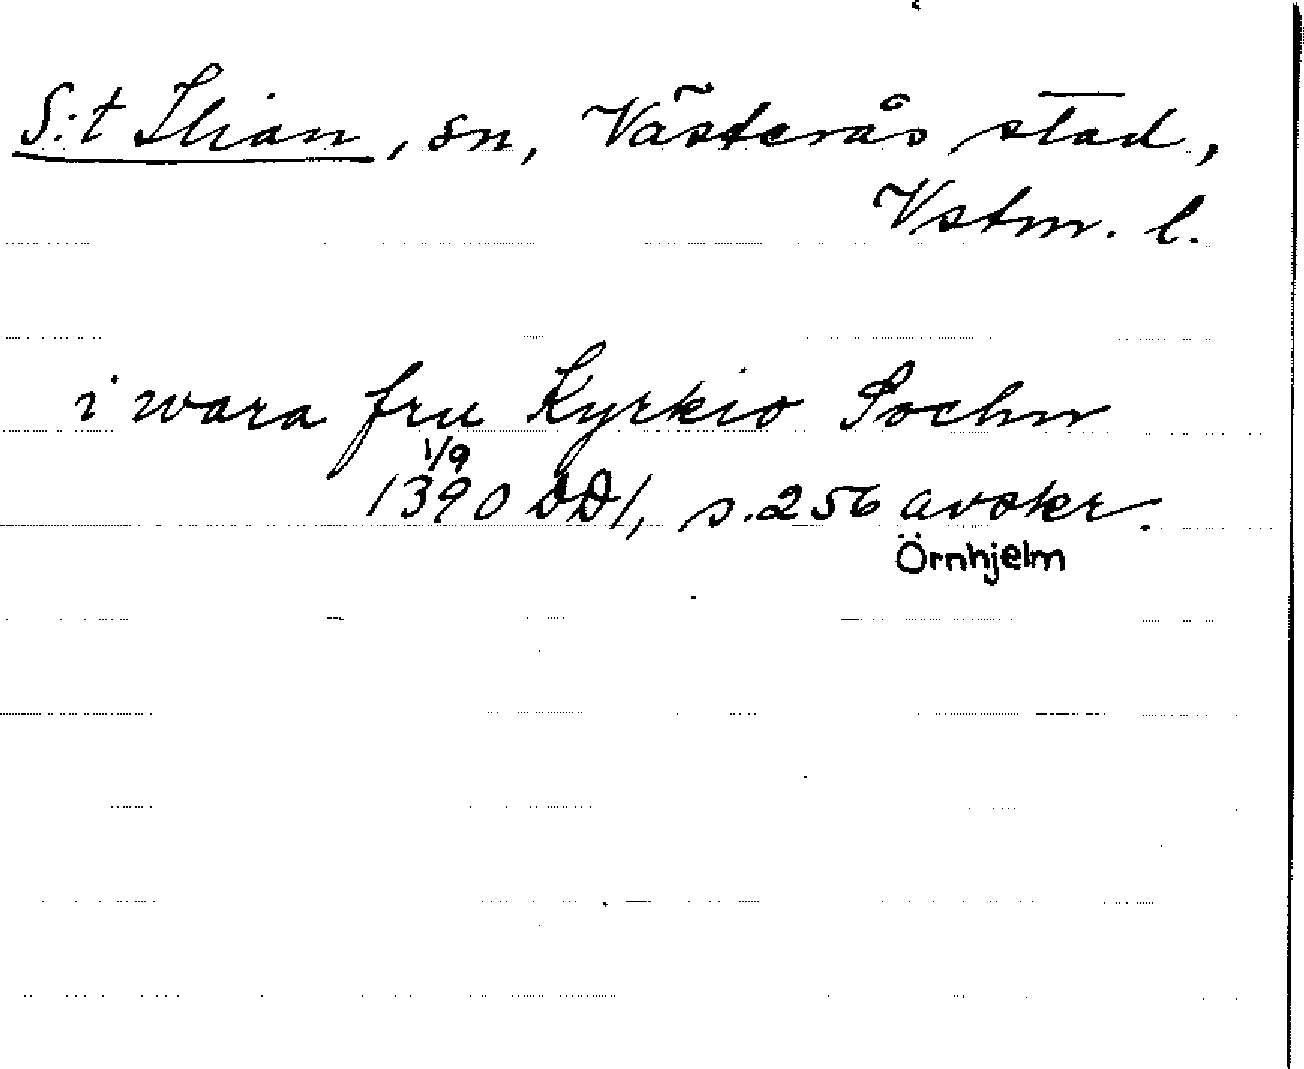 S:t Ilian, sn, Västerås stad,
Vstm. l.
i wara fru Kyrkio Sochn
1/9
1390 DD1, s. 256 avskr.
Örnhjelm